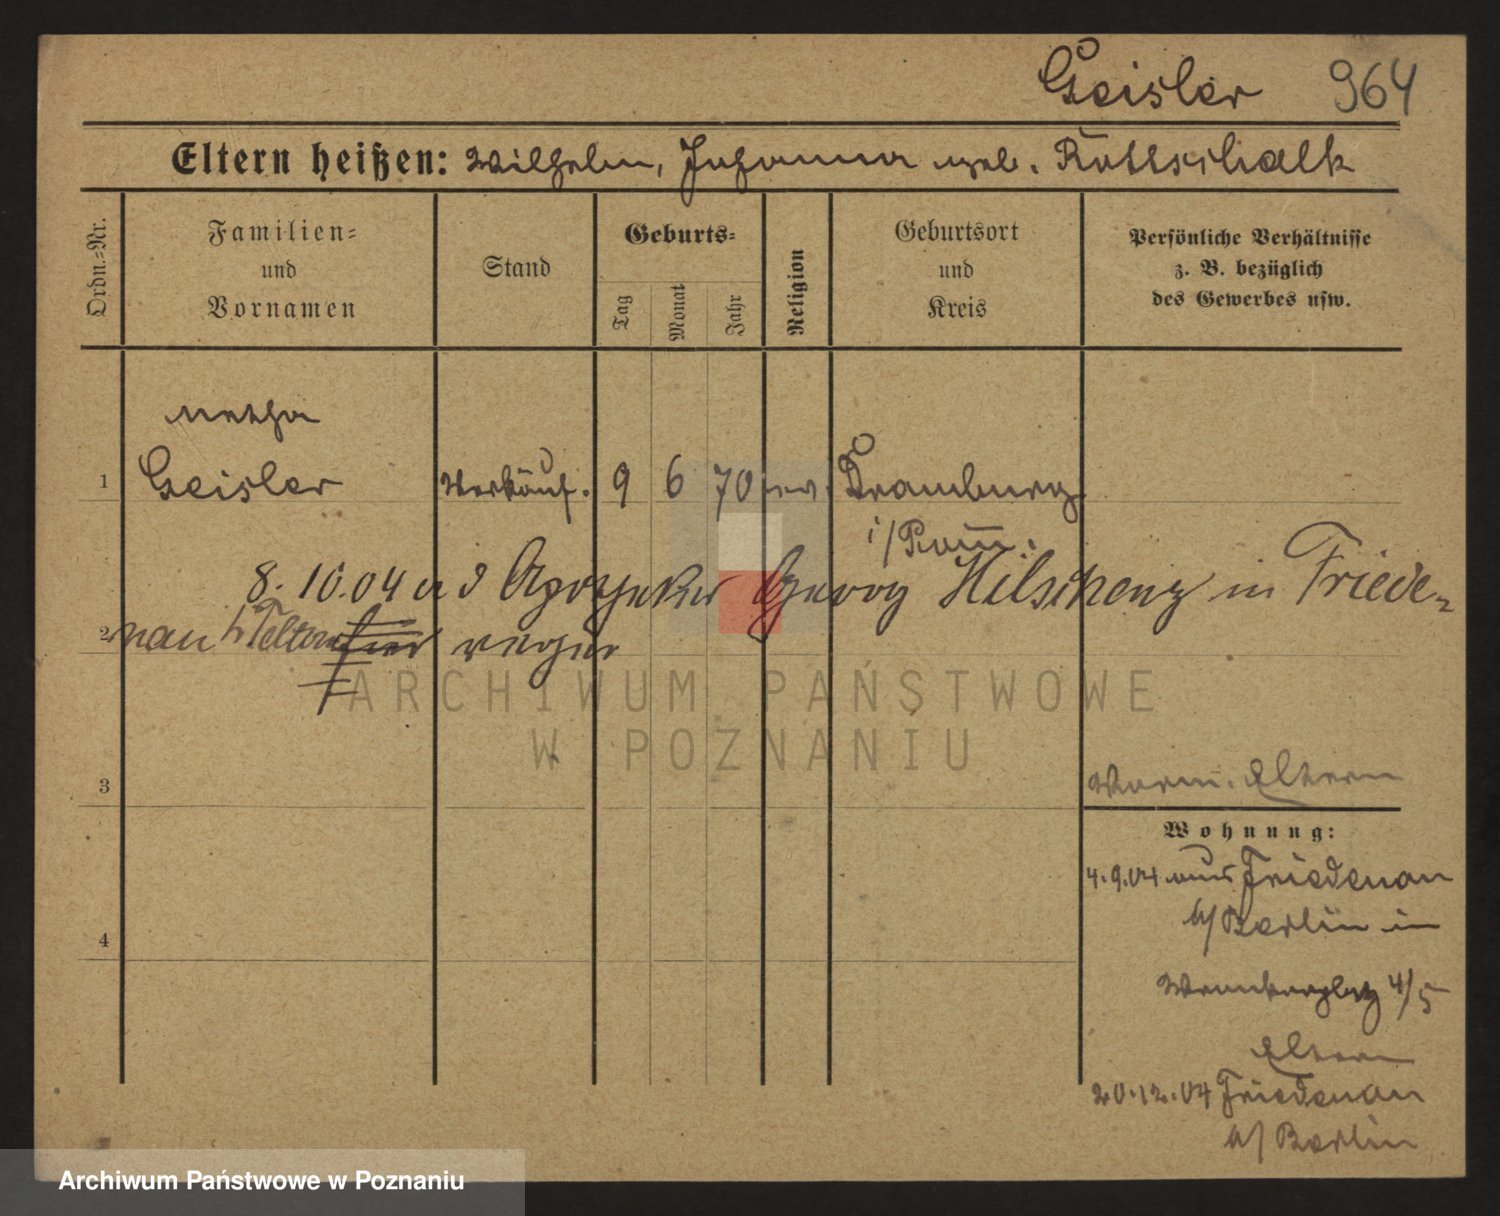 Geisler 964
Eltern heißen: Wilhelm, Johanna geb. Rottschalk
Ordn.=Nr.
Familien=
und
Vornamen
Stand
Geburts=
Tag
Monat
Jahr
Religion
Geburtsort
und
Kreis
Persönliche Verhältnisse
z. B. bezüglich
des Gewerbes usw.
Metha
1 Geisler Verkäuf. 9 6 70 ev. Dramburg
i/Pom.
8. 10. 04 a d Apotheker Georg Hilschenz in Friede-
2 nau b/Teltow hier
3
Worm. Eltern
Wohnung:
4.9.04 aus Friedenau
b/Berlin in
4
4/5
Eltern
20.12.04 Friedenau
b/Berlin
ARCHIWUM PAŃSTWOWE
W POZNANIU
Archiwum Państwowe w Poznaniu